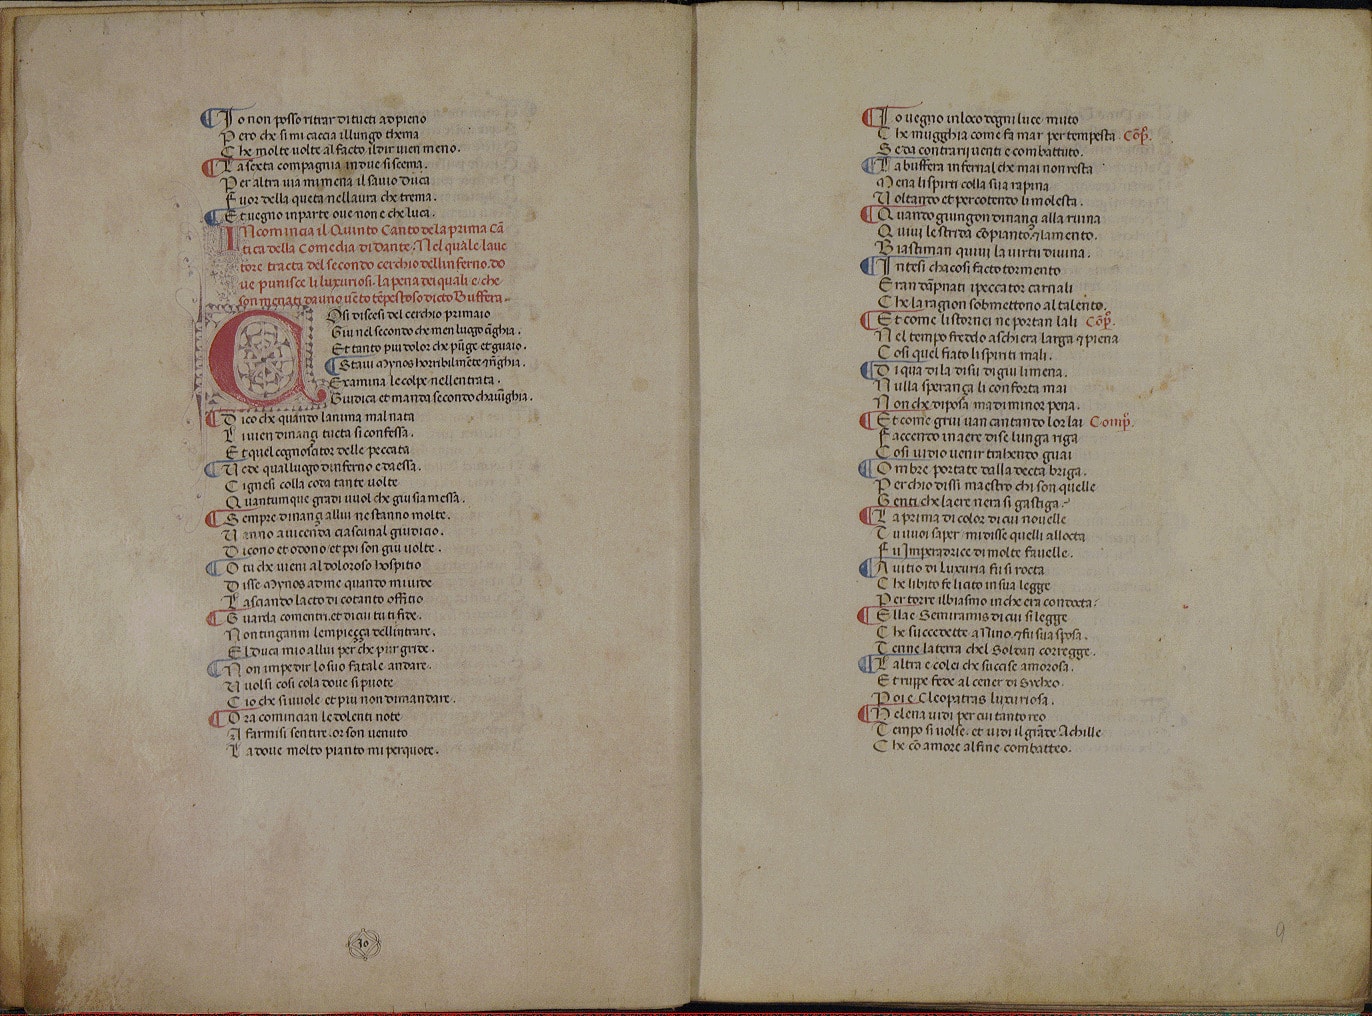 Io non posso ritrar di tucti ad pieno
Pero che si mi caccia il lungo thema
Che molte uolte al facto il dir uien meno.
La sexta compagnia in due si scema.
Per altra uia mi mena il sauio duca
Fuor della queta nellaura che trema.
Et uegno in parte oue non e che luca.
INcomincia il Quinto Canto de la prima Cā
tica della Comedia di Dante. Nel quale laue
tore tracta del secondo cerchio dellinferno. do
ue punisce li luxuriosi. la pena dei quali e che
son menati da uno uēto tēpestoso dicto Buffera
COsi discesi del cerchio primaio
Giu nel secondo che men luogo cīghia.
Et tanto piu dolor che pūge et guaio.
Staui Mynos horribilmēte rīghia.
Examina le colpe nellentrata.
Giudica et manda secondo chauīghia.
Dico che quando lanima mal nata
Li uien dinanzi tucta si confessa.
Et quel cognoscitor delle peccata
Vede qual luogo dinferno e da essa.
Cignesi colla coda tante uolte
Quantumque gradi uuol che giu sia messa.
Sempre dinanzi allui ne stanno molte.
Vanno a uicenda ciascun al giudicio.
Dicono et odono et poi son giu uolte.
O tu che uieni al doloroso hospitio
Disse Mynos ad me quando mi uide
Lasciando lacto di cotanto offitio
Guarda comentri. et di cui tu ti fide.
Non tinganni lempiezza dellintrare.
El duca mio allui perche pur gride.
Non impedir lo suo fatale andare.
Vuolsi cosi cola doue si puote
Cio che si uuole et piu non dimandare.
Ora comincian le dolenti note
A farmisi sentire. or son uenuto
La doue molto pianto mi perquote.
30
Io uegno in loco dogni luce muto
Che mugghia come fa mar per tempesta Cōp̄.
Se da contrarij uenti e combattuto.
La buffera infernal che mai non resta
Mena li spirti colla sua rapina
Voltando et percotendo li molesta.
Quando giungon dinanzi alla ruina
Quiui le strida cōpianto ⁊ lamento.
Biastiman quiui la uirtu diuina.
Intesi cha cosi facto tormento
Eran dāpnati i peccator carnali
Che la ragion sobmettono al talento.
Et come li stornei ne portan lali Cōp̄.
Nel tempo freddo a schiera larga ⁊ piena
Cosi quel fiato li spiriti mali.
Di qua di la di su di giu li mena.
Nulla speranza li conforta mai
Non che di posa ma di minor pena.
Et come griu uan cantando lor lai Comp̄.
Faccendo in aere di se lunga riga
Cosi uidio uenir trahendo guai
Ombre portate dalla decta briga.
Perchio dissi maestro chi son quelle
Genti che laere nera si gastiga.
La prima di color di cui nouelle
Tu uuoi saper mi disse quelli allocta
Fu Imperadrice di molte fauelle.
A uitio di luxuria fu si rocta
Che libito fe licito in sua legge
Per torre il biasmo in che era condocta.
Ella e Semiramis di cui si legge
Che succedette a Nino ⁊ fu sua sposa.
Tenne la terra chel Soldan corregge.
Laltra e colei che succise amorosa.
Et ruppe fede al cener di Sicheo.
Poi e Cleopatras luxuriosa.
Helena uidi per cui tanto reo
Tempo si uolse. et uidi il grāde Achille
Che cō amore al fine combatteo.
9